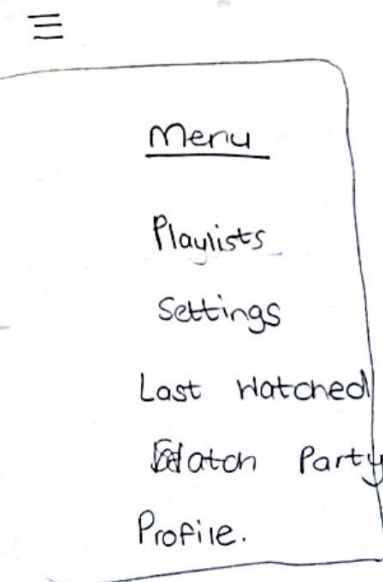 Menu
Playlists
Settings
Last Watched
Watch Party
Profile.